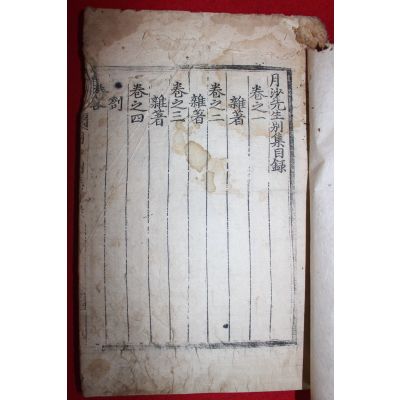 月沙先生別集目録
卷之一
雜著
卷之二
雜著
卷之三
雜著
卷之四
劄